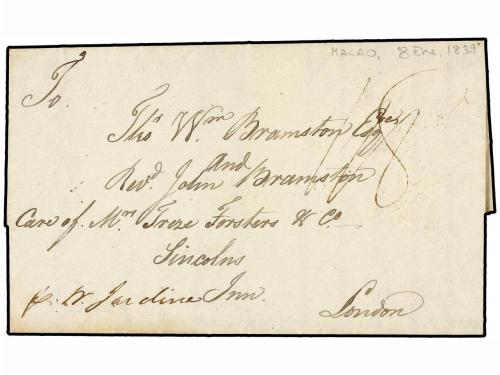 MACAO, 8 Ene, 1839
To.
Thos Wm Bramston Esqres
And
Revd John Bramston
Care of Mrs Freze Forsters & Co
Lincolns
p. W. Jardine Inn.
London